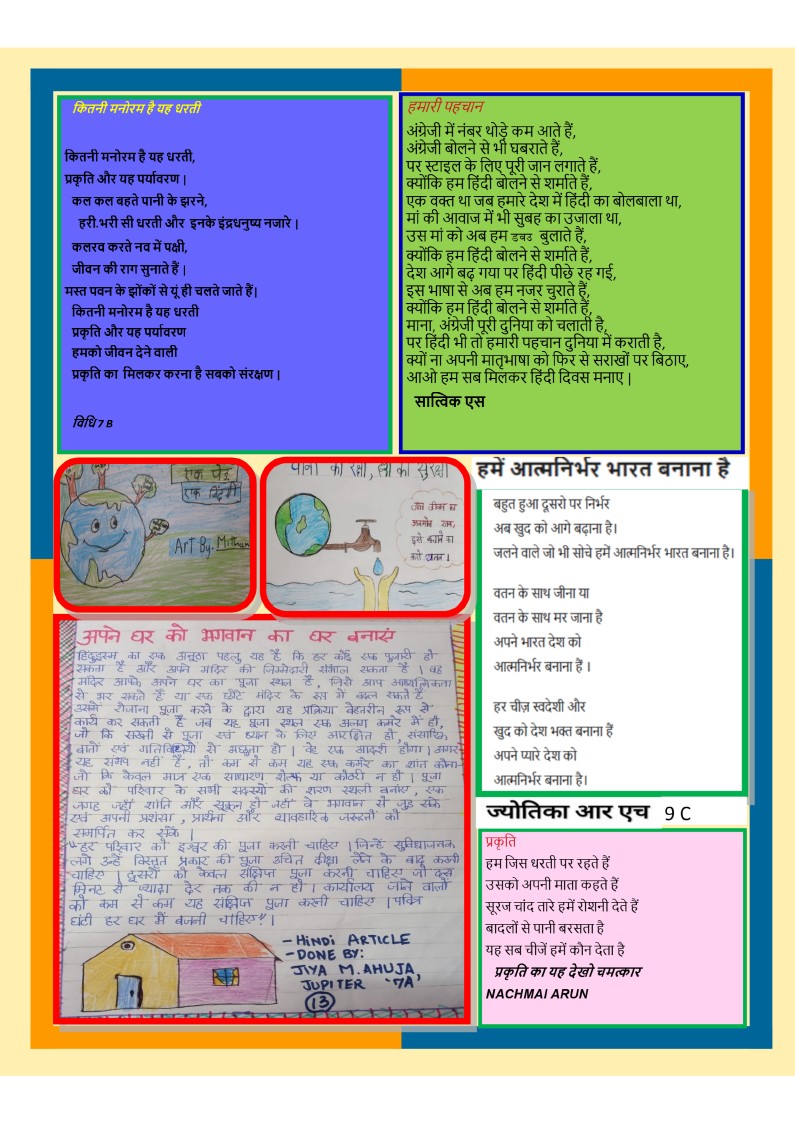 कितनी मनोरम है यह धरती
कितनी मनोरम है यह धरती,
प्रकृति और यह पर्यावरण |
कल कल बहते पानी के झरने,
हरी.भरी सी धरती और  इनके इंद्रधनुष्य नजारे |
कलरव करते नव में पक्षी,
जीवन की राग सुनाते हैं |
मस्त पवन के झोंकों से यूं ही चलते जाते हैं|
कितनी मनोरम है यह धरती
प्रकृति और यह पर्यावरण
हमको जीवन देने वाली
प्रकृति का  मिलकर करना है सबको संरक्षण |
विधि 7 B
हमारी पहचान
अंग्रेजी में नंबर थोड़े कम आते हैं,
अंग्रेजी बोलने से भी घबराते हैं,
पर स्टाइल के लिए पूरी जान लगाते हैं,
क्योंकि हम हिंदी बोलने से शर्माते हैं,
एक वक्त था जब हमारे देश में हिंदी का बोलबाला था,
मां की आवाज में भी सुबह का उजाला था,
उस मां को अब हम डबड  बुलाते हैं,
क्योंकि हम हिंदी बोलने से शर्माते हैं,
देश आगे बढ़ गया पर हिंदी पीछे रह गई,
इस भाषा से अब हम नजर चुराते हैं,
क्योंकि हम हिंदी बोलने से शर्माते हैं,
माना, अंग्रेजी पूरी दुनिया को चलाती है,
पर हिंदी भी तो हमारी पहचान दुनिया में कराती है,
क्यों ना अपनी मातृभाषा को फिर से सराखों पर बिठाए,
आओ हम सब मिलकर हिंदी दिवस मनाए |
सात्विक एस
एक पेड़
एक ज़िंदगी
Art By. Mithun
पानी की रक्षा, की सुरक्षा
जल जीवन का
अनमोल रत्न,
इसे बचाने का
करो यतन।
हमें आत्मनिर्भर भारत बनाना है
बहुत हुआ दूसरो पर निर्भर
अब खुद को आगे बढ़ाना है।
जलने वाले जो भी सोचे हमें आत्मनिर्भर भारत बनाना है।
वतन के साथ जीना या
वतन के साथ मर जाना है
अपने भारत देश को
आत्मनिर्भर बनाना हैं ।
हर चीज़ स्वदेशी और
खुद को देश भक्त बनाना हैं
अपने प्यारे देश को
आत्मनिर्भर बनाना है।
ज्योतिका आर एच 9 C
अपने घर को भगवान का घर बनाएं
हिंदुइस्म का एक अनूठा पहलू यह है कि हर कोई एक पुजारी हो
सकता है और अपने मंदिर की ज़िम्मेदारी संभाल सकता है । वह
मंदिर आपके अपने घर का पूजा स्थल है, जिसे आप आध्यात्मिकता
से भर सकते है या एक छोटे मंदिर के रूप में बदल सकते है
उसमें रोजाना पूजा करने के द्वारा यह प्रक्रिया बेहतरीन रूप से
कार्य कर सकती है जब यह पूजा स्थल एक अलग कमरे में हो,
जो कि सख्ती से पूजा एवं ध्यान के लिए आरक्षित हो, संसारिक
बातों एवं गतिविधियों से अछूता हो । ये एक आदर्श होगा । अगर
यह संभव नहीं है, तो कम से कम यह एक कमरे का शांत कोना-
जो कि केवल मात्र एक साधारण शेल्फ या कोठरी न हो । पूजा
घर को परिवार के सभी सदस्यों की शरण स्थली बनाए, एक
जगह जहाँ शांति और सुकून हो जहाँ वे भगवान से जुड़ सके
एवं अपनी प्रशंसा, प्रार्थना और व्यावहारिक जरूरतों को
समर्पित कर सके ।
"हर परिवार को ईश्वर की पूजा करनी चाहिए । जिन्हें सुविधाजनक
लगे उन्हें विस्तृत प्रकार की पूजा उचित दीक्षा लेने के बाद करनी
चाहिए । दूसरों को केवल संक्षिप्त पूजा करनी चाहिए जो दस
मिनट से ज्यादा देर तक की न हो । कार्यालय जाने वालों
को कम से कम यह संक्षिप्त पूजा करनी चाहिए । पवित्र
घंटी हर घर में बजनी चाहिए" ।
- HINDI ARTICLE
- DONE BY:
JIYA M. AHUJA,
JUPITER '7A'
13
प्रकृति
हम जिस धरती पर रहते हैं
उसको अपनी माता कहते हैं
सूरज चांद तारे हमें रोशनी देते हैं
बादलों से पानी बरसता है
यह सब चीजें हमें कौन देता है
प्रकृति का यह देखो चमत्कार
NACHMAI ARUN